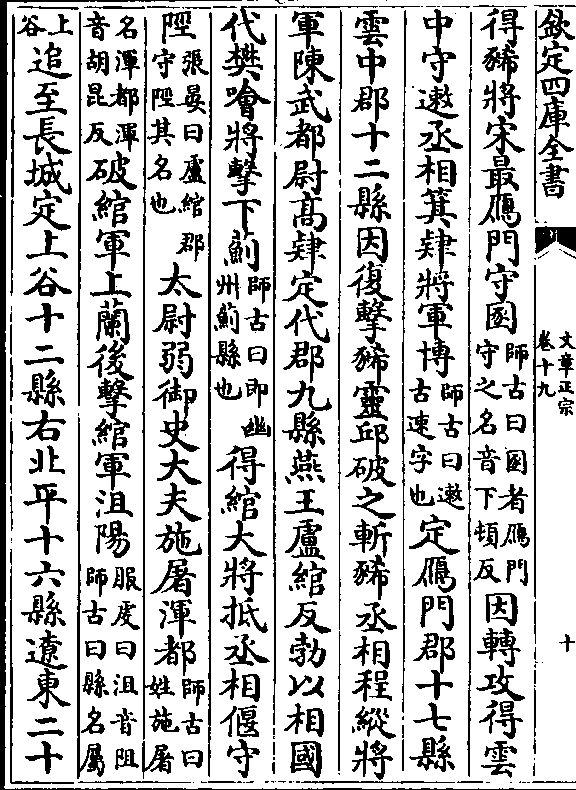 欽定四庫全書
文章正宗
卷十九
十
得豨將宋最鴈門守圂師古曰圂者鴈門守之名音下頓反因轉攻得雲
中守遬丞相箕肄將軍博師古曰遬古速字也定鴈門郡十七縣
雲中郡十二縣因復擊豨靈邱破之斬豨丞相程縱將
軍陳武都尉髙肄定代郡九縣燕王盧綰反勃以相國
代樊噲將擊下薊師古曰即幽州薊縣也得綰大將抵丞相偃守
陘張晏曰盧綰郡守陘其名也太尉弱御史大夫施屠渾都師古曰姓施屠
名渾都渾音胡昆反破綰軍上蘭後擊綰軍沮陽服䖍曰沮音阻師古曰縣名屬
上谷追至長城定上谷十二縣右北平十六縣遼東二十